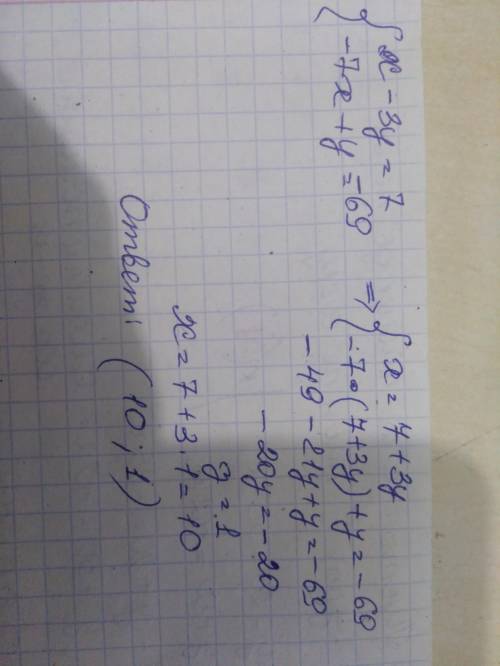 { x - 3y = 7 => { x = 7 + 3y
{ -7x + y = -69 { -7•(7+3y) + y = -69
-49 - 21y + y = -69
-20y = -20
y = 1
x = 7 + 3·1 = 10
Ответ: (10; 1)